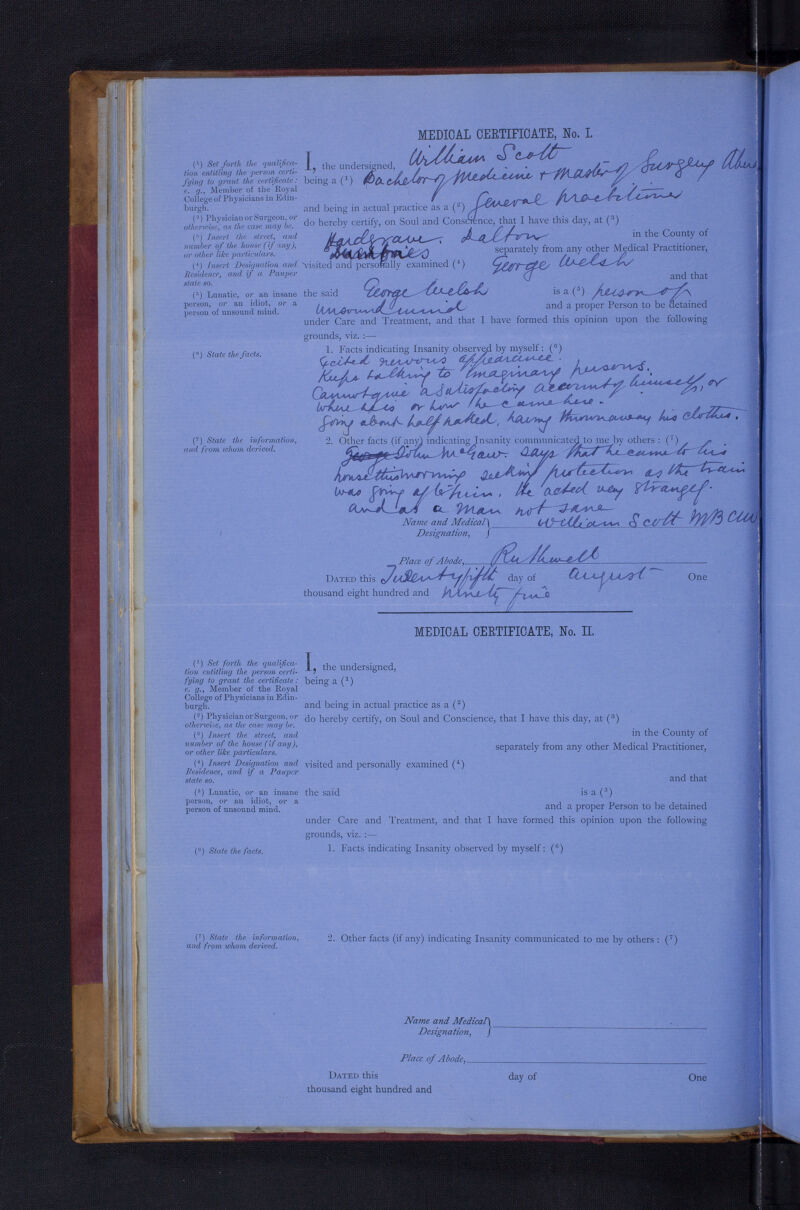 MEDICAL CERTIFICATE, No. I.
(¹) Set forth the qualifica-
tion entitling the person certi-
fying to grant the certificate:
e. g., Member of the Royal
College of Physicians in Edin-
burgh.
(²) Physician or Surgeon, or
otherwise, as the case may be.
(³) Insert the street, and
number of the house (if any),
or other like particulars.
(⁴) Insert Designation and
Residence, and if a Pauper
state so.
(⁵) Lunatic, or an insane
person, or an idiot, or a
person of unsound mind.
(⁶) State the facts.
(⁷) State the information,
and from whom derived.
I, the undersigned, William Scott
being a (¹) Bachelor of Medicine & Master of Surgery
and being in actual practice as a (²) General Practitioner
do hereby certify, on Soul and Conscience, that I have this day, at (³)
Hardgrave. Dalton in the County of
Dumfries separately from any other Medical Practitioner,
visited and personally examined (⁴) George Welsh
and that
the said George Welsh is a (⁵) person of
unsound mind and a proper Person to be detained
under Care and Treatment, and that I have formed this opinion upon the following
grounds, viz. :—
1. Facts indicating Insanity observed by myself: (⁶)
Excited nervous appearance.
Keeps talking to imaginary persons.
Cannot give a satisfactory account of himself, or
where he is or how he came here.
Going about half naked, having thrown away his clothes.
2. Other facts (if any) indicating Insanity communicated to me by others : (⁷)
George John McGaw. says that he came to his
house this morning seeking protection as the train
was going after him. He acted very strangely.
and as a man not sane
Name and Medical Designation, William Scott MB CM
Place of Abode, Ruthwell
DATED this Twenty fifth day of August One
thousand eight hundred and ninety five
MEDICAL CERTIFICATE, No. II.
(¹) Set forth the qualifica-
tion entitling the person certi-
fying to grant the certificate:
e. g., Member of the Royal
College of Physicians in Edin-
burgh.
(²) Physician or Surgeon, or
otherwise, as the case may be.
(³) Insert the street, and
number of the house (if any),
or other like particulars.
(⁴) Insert Designation and
Residence, and if a Pauper
state so.
(⁵) Lunatic, or an insane
person, or an idiot, or a
person of unsound mind.
(⁶) State the facts.
(⁷) State the information,
and from whom derived.
I, the undersigned,
being a (¹)
and being in actual practice as a (²)
do hereby certify, on Soul and Conscience, that I have this day, at (³)
in the County of
separately from any other Medical Practitioner,
visited and personally examined (⁴)
and that
the said is a (⁵)
and a proper Person to be detained
under Care and Treatment, and that I have formed this opinion upon the following
grounds, viz. :—
1. Facts indicating Insanity observed by myself: (⁶)
2. Other facts (if any) indicating Insanity communicated to me by others : (⁷)
Name and Medical
Designation,
Place of Abode,
DATED this day of One
thousand eight hundred and